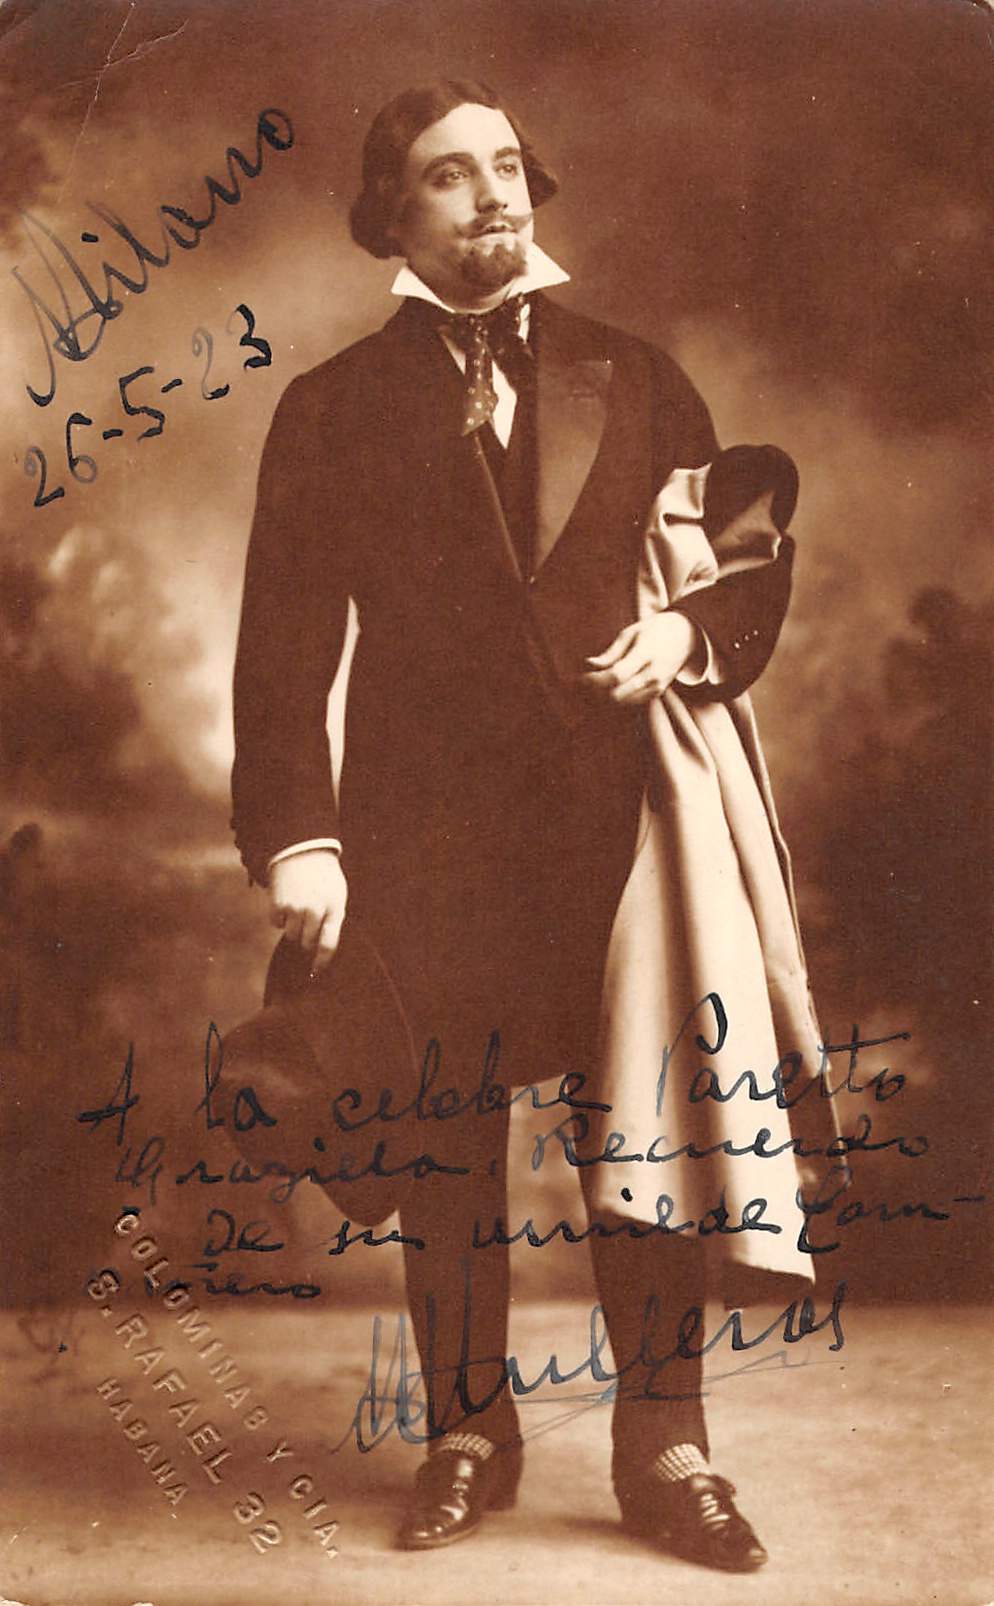 Milano
26-5-23
A la celebre Paretto
Graziella. Recuerdo
De su umilde Com-
pañero
COLOMINAS Y CIA.
S. RAFAEL 32
HABANA